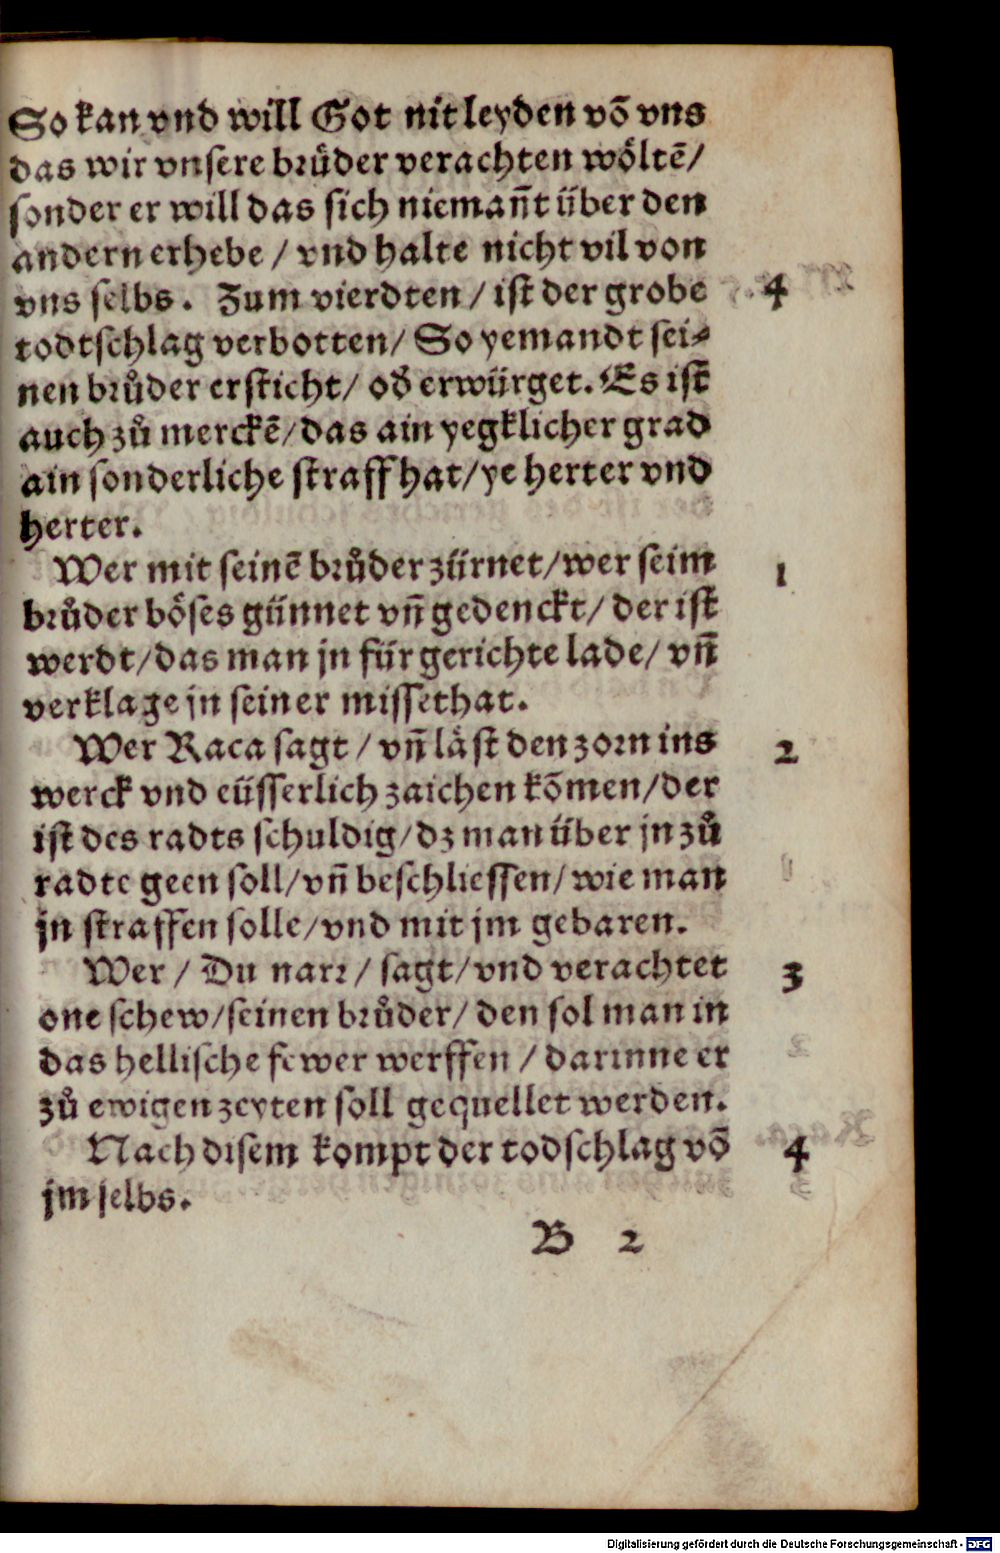 So kan vnd will Got nit leyden võ vns
das wir vnsere brůder verachten wöltē/
sonder er will das sich niemañt über den
andern erhebe / vnd halte nicht vil von
vns selbs. Zum vierdten / ist der grobe 4
todtschlag verbotten/ So yemandt sei⸗
nen brůder ersticht/ oď erwürget. Es ist
auch zů merckē/das ain yegklicher grad
ain sonderliche straff hat/ye herter vnd
herter.
Wer mit seinē brůder zürnet/wer seim 1
brůder böses günnet vñ gedenckt/ der ist
werdt/das man jn für gerichte lade/ vñ
verklage jn seiner missethat.
Wer Raca sagt / vñ läst den zorn ins 2
werck vnd eüsserlich zaichen kõmen/der
ist des radts schuldig/dz man über jn zů
radte geen soll/vñ beschliessen/wie man
jn straffen solle/vnd mit jm gebaren.
Wer / Du narr / sagt/vnd verachtet 3
one schew/seinen brůder/ den sol man in
das hellische fewer werffen / darinne er
zů ewigen zeyten soll gequellet werden.
Nach disem kompt der todschlag võ 4
jm selbs.
B 2
Digitalisierung gefördert durch die Deutsche Forschungsgemeinschaft - DFG